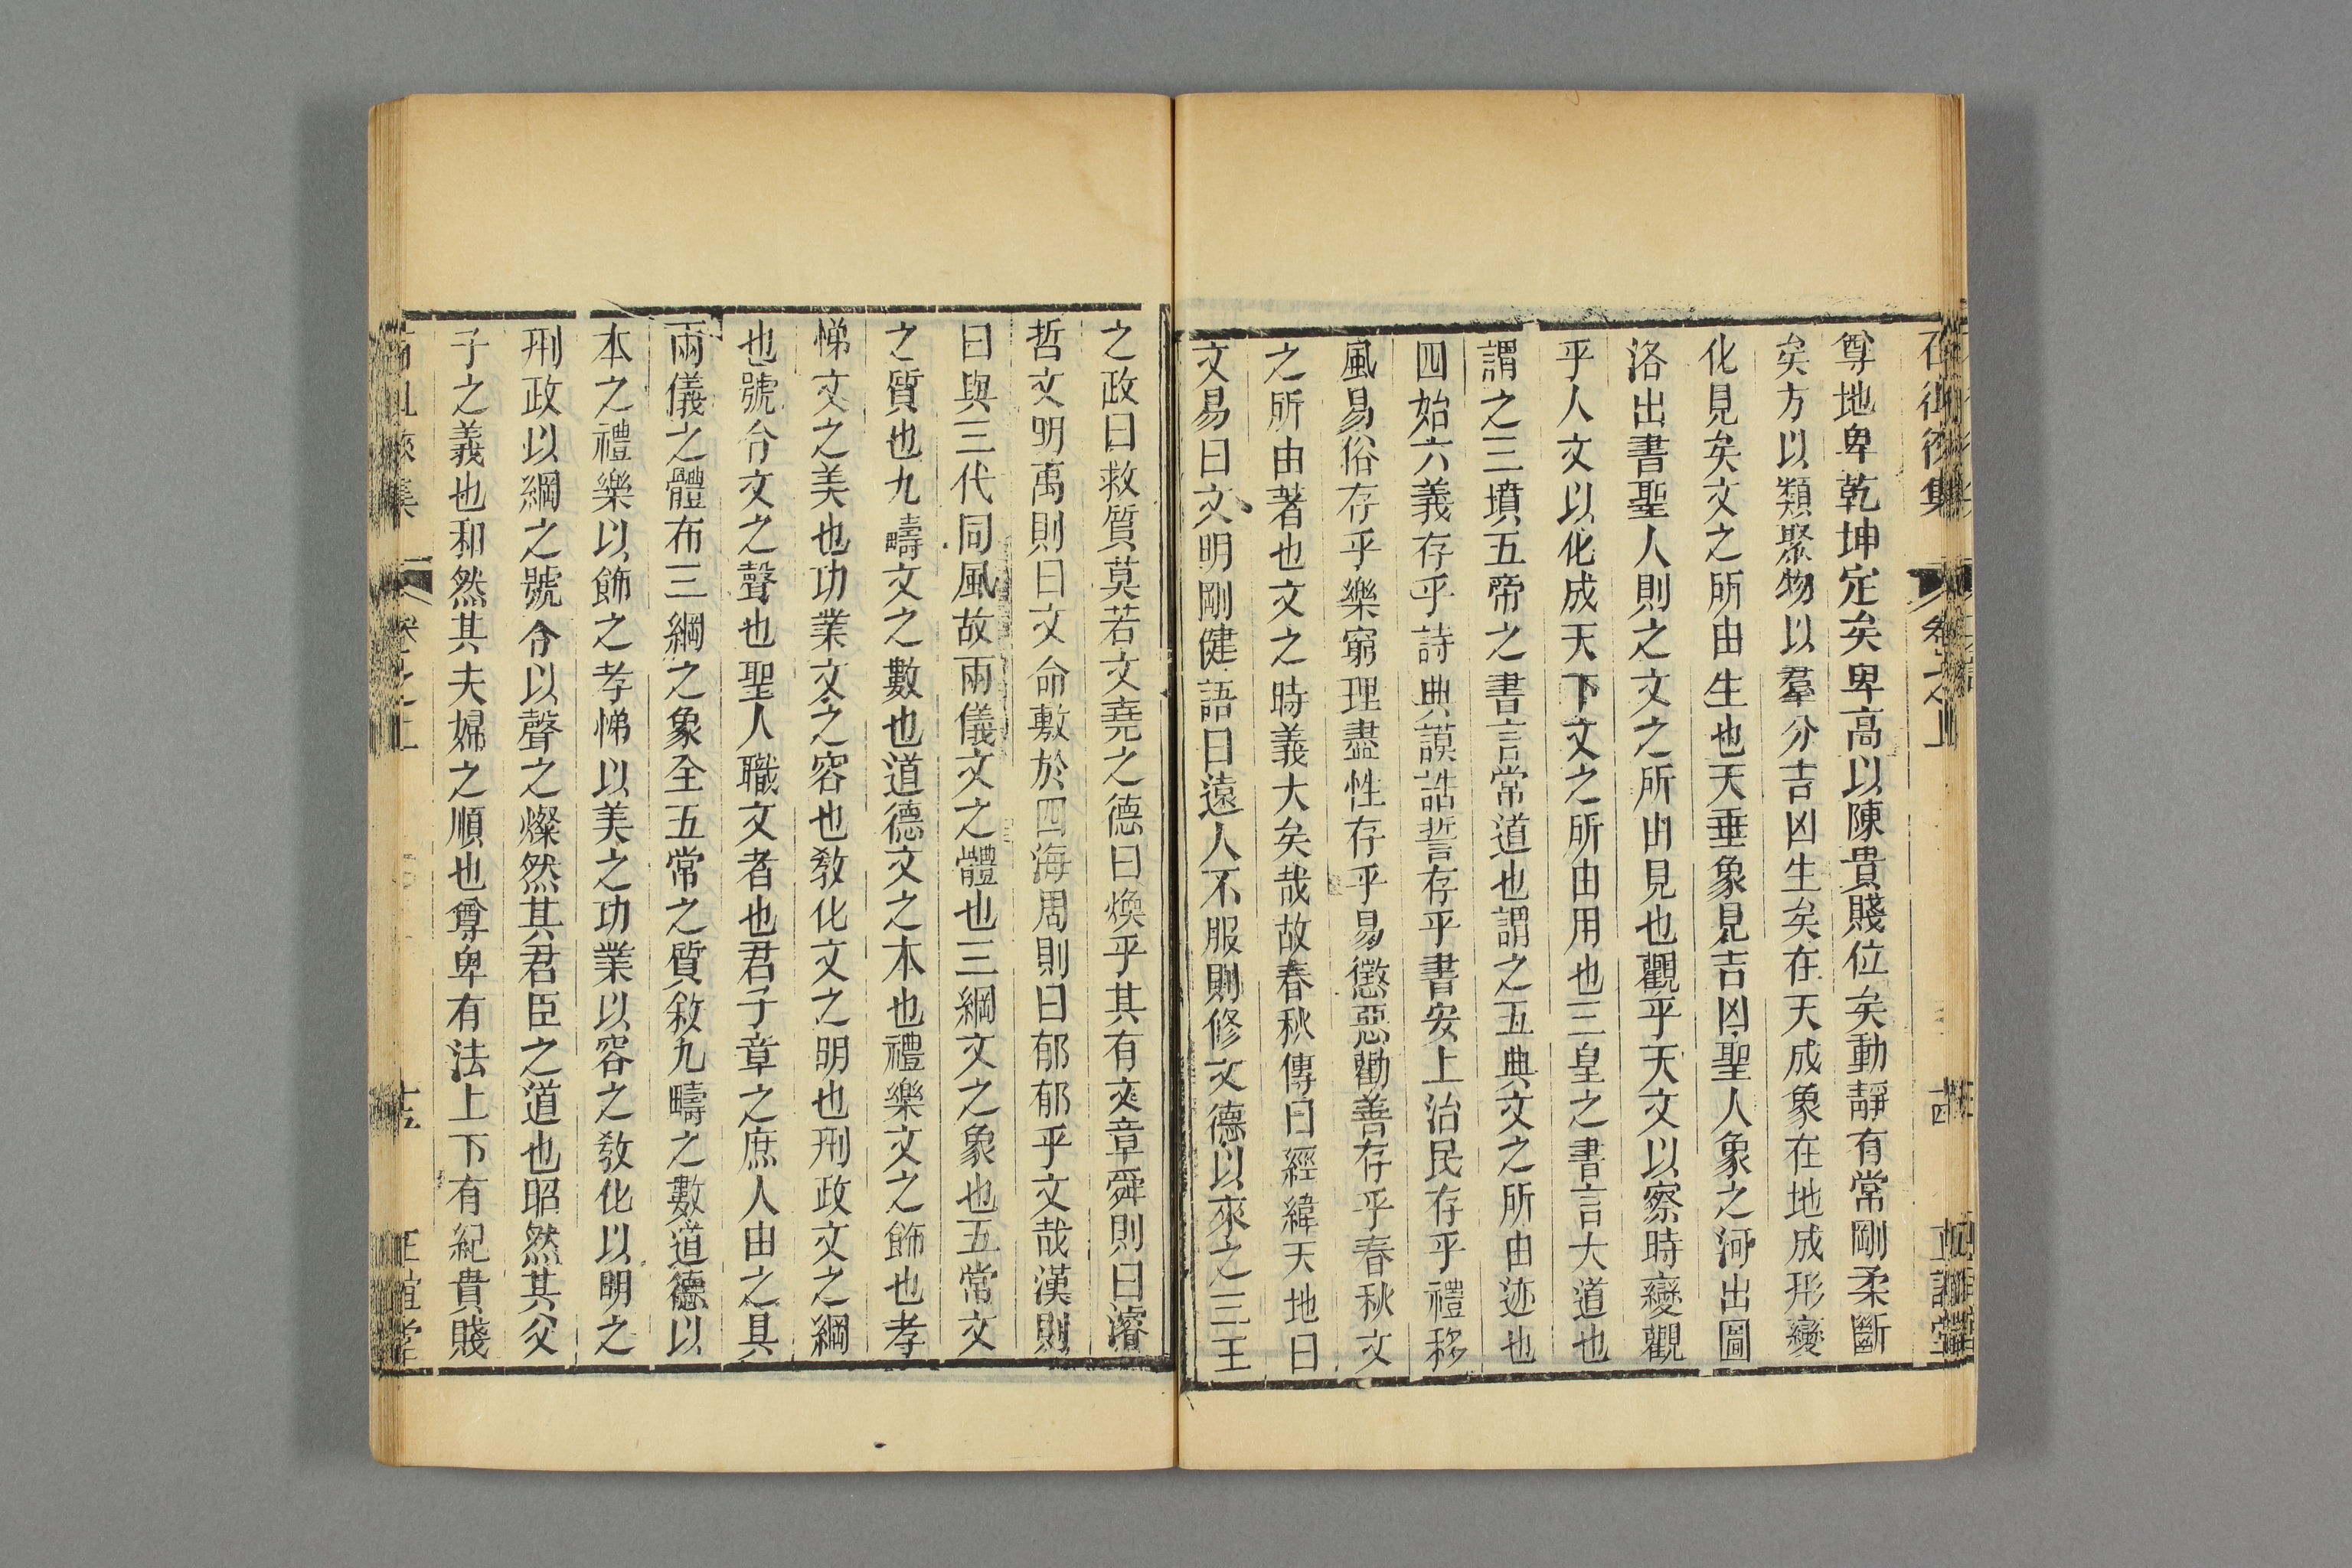 尊地卑乾坤定矣卑高以陳貴賤位矣動靜有常剛柔斷
矣方以類聚物以羣分吉凶生矣在天成象在地成形變
化見矣文之所由生也天垂象見吉凶聖人象之河出圖
洛出書聖人則之文之所由見也觀乎天文以察時變觀
乎人文以化成天下文之所由用也三皇之書言大道也
謂之三墳五帝之書言常道也謂之五典文之所由迹也
四始六義存乎詩典謨誥誓存乎書安上治民存乎禮移
風易俗存乎樂窮理盡性存乎易懲惡勸善存乎春秋文
之所由著也文之時義大矣哉故春秋傳曰經緯天地曰
文易曰文明剛健語曰遠人不服則修文德以來之三王
之政曰救質莫若文堯之德曰煥乎其有文章舜則曰濬
哲文明禹則曰文命敷於四海周則曰郁郁乎文哉漢則
曰與三代同風故兩儀文之體也三綱文之象也五常文
之質也九疇文之數也道德文之本也禮樂文之飾也孝
悌文之美也功業文之容也敎化文之明也刑政文之綱
也號令文之聲也聖人職文者也君子章之庶人由之具
兩儀之體布三綱之象全五常之質敘九疇之數道德以
本之禮樂以飾之孝悌以美之功業以容之敎化以明之
刑政以綱之號令以聲之燦然其君臣之道也昭然其父
子之義也和然其夫婦之順也尊卑有法上下有紀貴賤